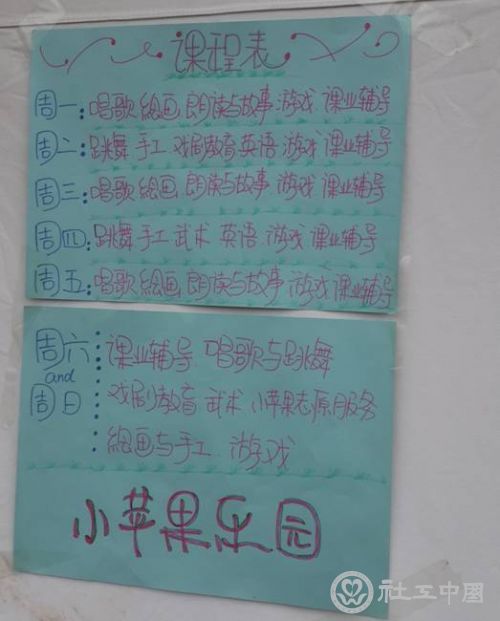 课程表
周一:唱歌 绘画 朗读与故事 游戏 课业辅导
周二:跳舞 手工 戏剧教育 英语 游戏 课业辅导
周三:唱歌 绘画 朗读与故事 游戏 课业辅导
周四:跳舞 手工 武术 英语 游戏 课业辅导
周五:唱歌 绘画 朗读与故事 游戏 课业辅导
周六 课业辅导 唱歌与跳舞
and
周日 戏剧教育 武术 小苹果志愿服务
绘画与手工 游戏
小苹果乐园
社工中國